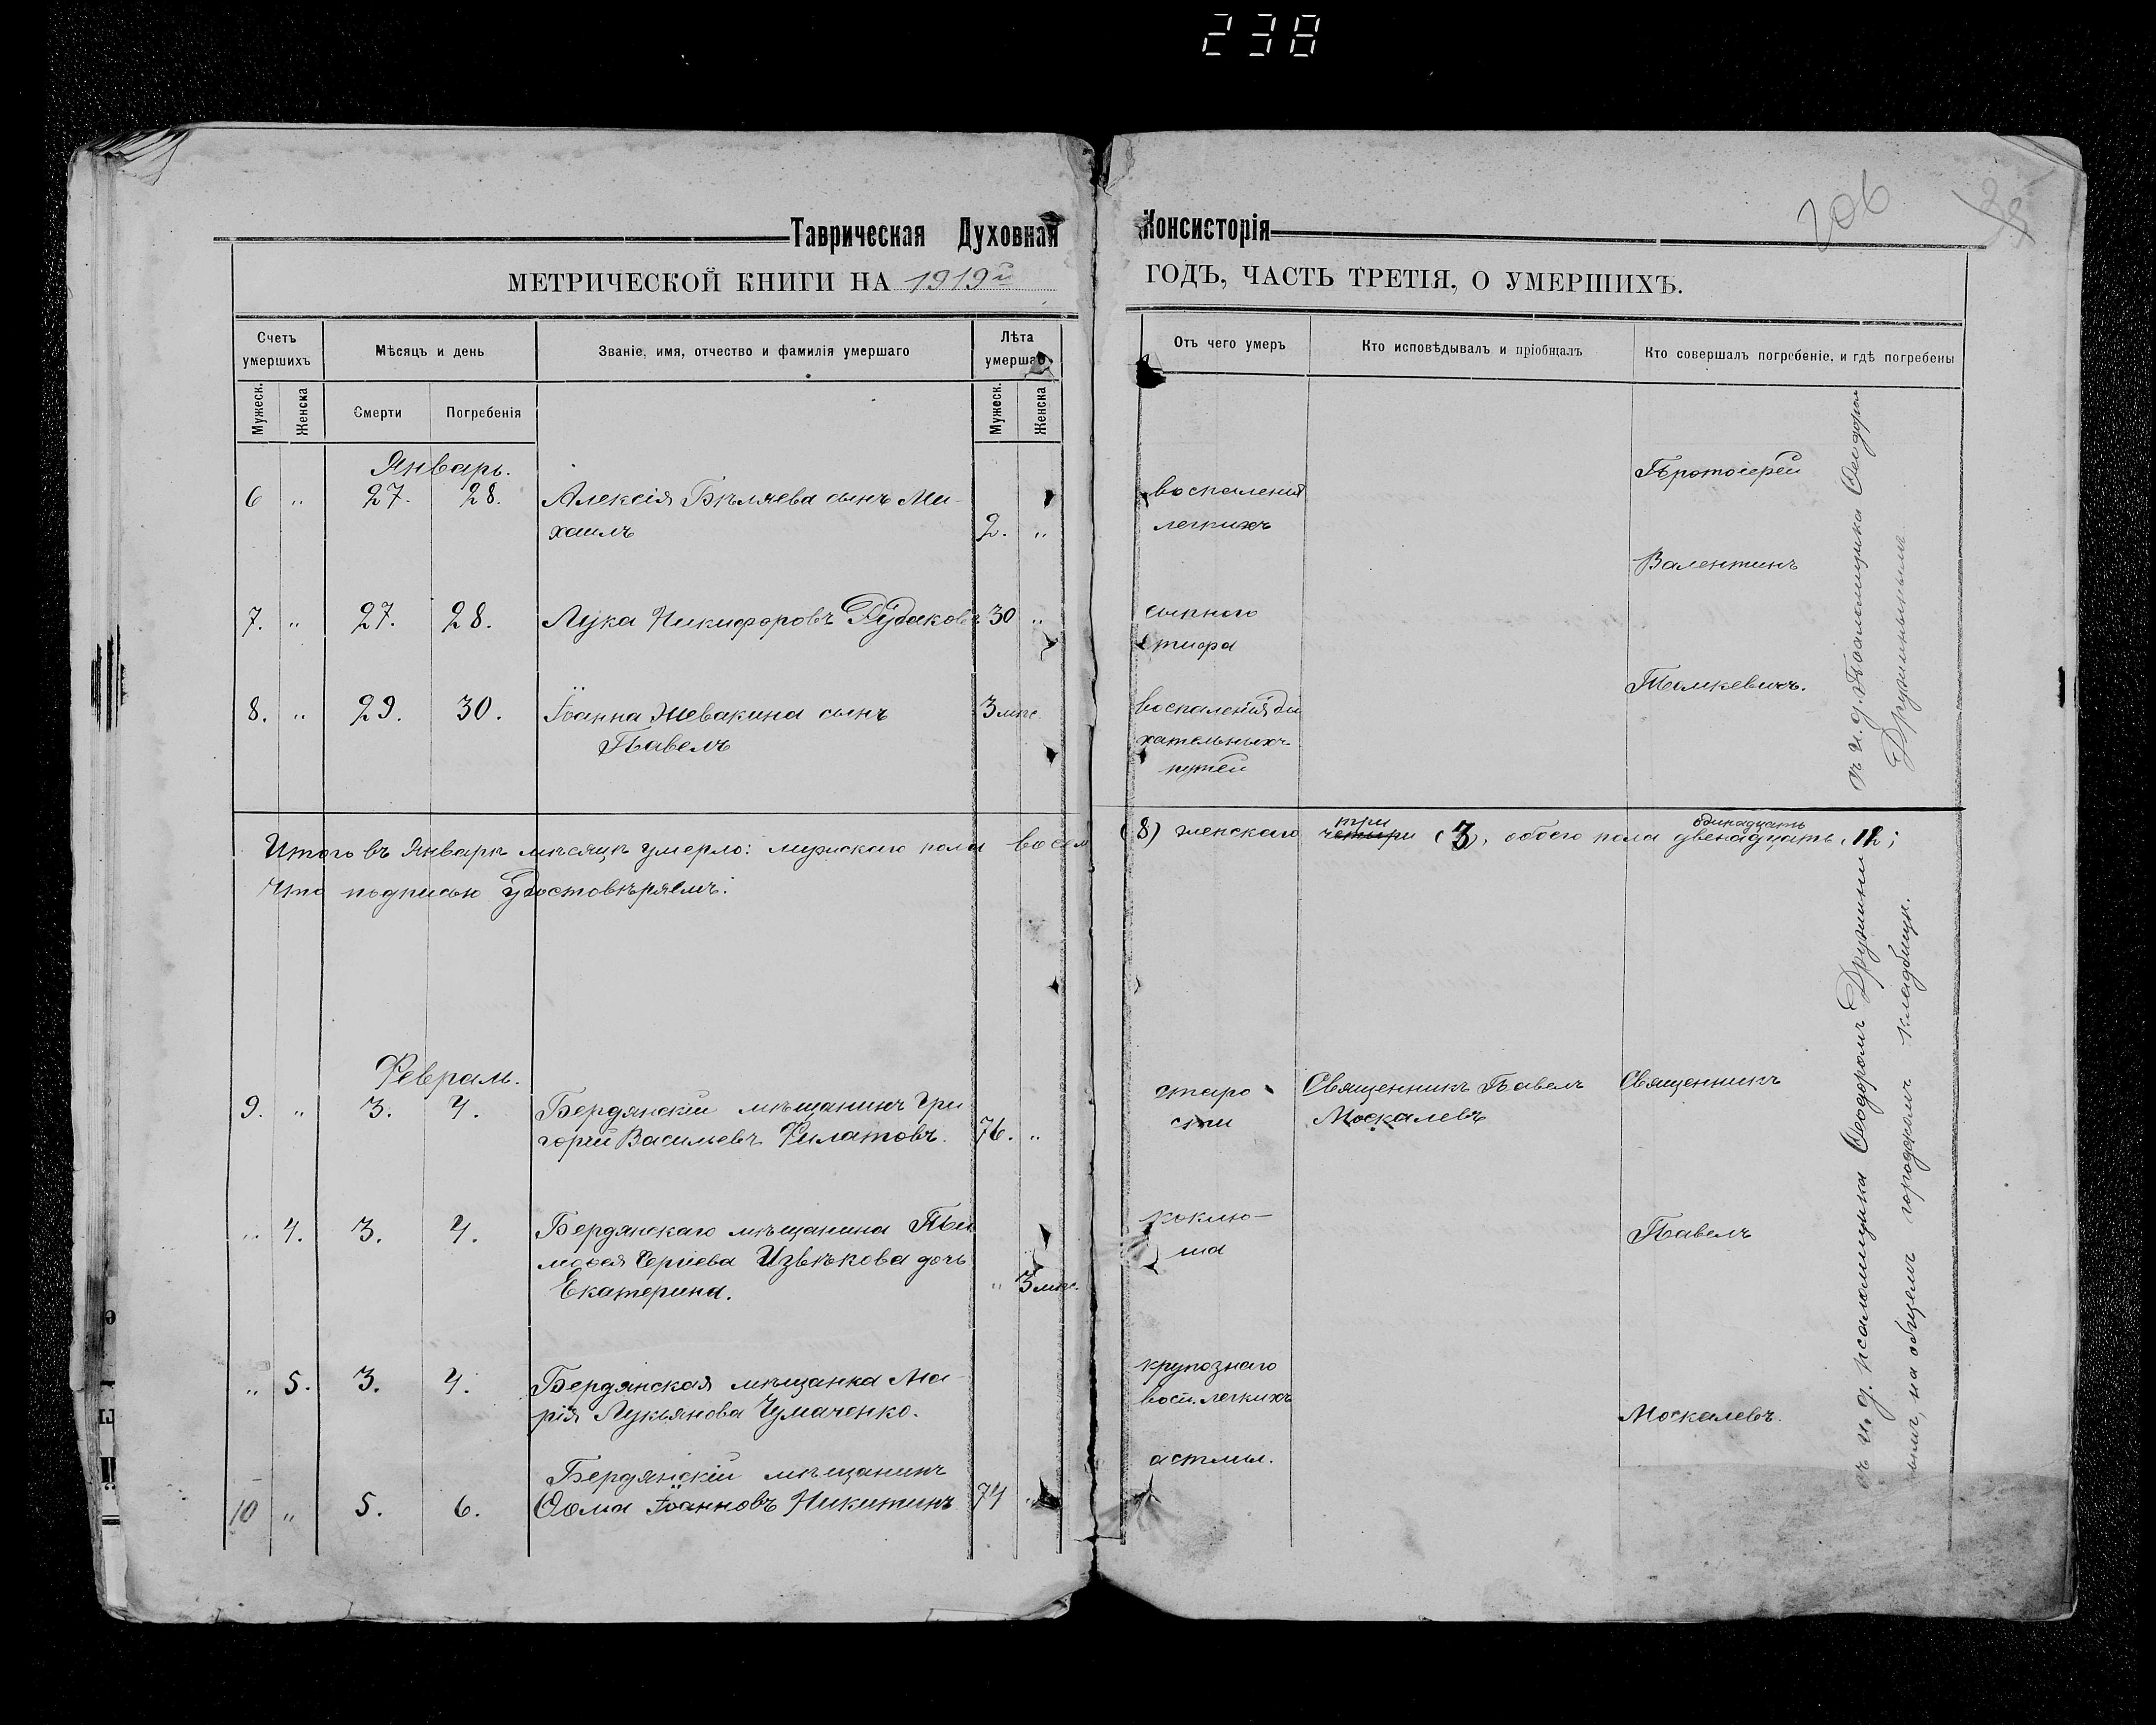 238
206
Таврическая Духовная Консисторія
МЕТРИЧЕСКОЙ КНИГИ НА 1919й ГОДЪ, ЧАСТЬ ТРЕТІЯ, О УМЕРШИХЪ.
Счетъ умершихъ
Мѣсяцъ и день
Званіе, имя, отчество и фамилія умершаго
Лѣта умершаго
Отъ чего умеръ
Кто исповѣдывалъ и пріобщалъ
Кто совершалъ погребеніе, и гдѣ погребены
Мужеск.
Женска
Смерти
Погребенія
Мужеск.
Женска
Январь.
6 " 27. 28. Алексія Бѣляева сынъ Ми-
хаилъ 2. "
воспаленія
легкихъ
Протоіерей
Валентинъ
7. " 27. 28. Лука Никифоровъ Рудаковъ 30 "
сыпного
тифа
8. " 29. 30. Іоанна Жевакина сынъ 3 мѣс.
Павелъ
воспаленія ды
хательныхъ
путей
Томкевичъ.
съ и. д. Псаломщика Ѳеодоромъ
Дружининымъ
Итого въ Январѣ мѣсяцѣ умерло: мужскаго пола восемь (8) женскаго четыри три (3), обоего пола двенадцать одинадцать 11;
Что подписью удостовѣряемъ:
Февраль.
9. " 3. 4. Бердянскій мѣщанинъ Гри
горій Васильевъ Филатовъ. 76. "
старо
сти
Священникъ Павелъ
Москалевъ
Священникъ
" 4. 3. 4. Бердянскаго мѣщанина Ти
моѳея Сергіева Извѣкова дочь
Екатерина. " 3 мѣс.
коклю-
ша
Павелъ
" 5. 3. 4. Бердянская мѣщанка Ма-
рія Лукьянова Чумаченко.
крупознаго
восп. легкихъ
Москалевъ.
10 " 5. 6. Бердянскій мѣщанинъ
Ѳома Іоанновъ Никитинъ 74 "
астмы.
съ и. д. псаломщика Ѳеодоромъ Дружини
нымъ, на общемъ городскомъ кладбищѣ.